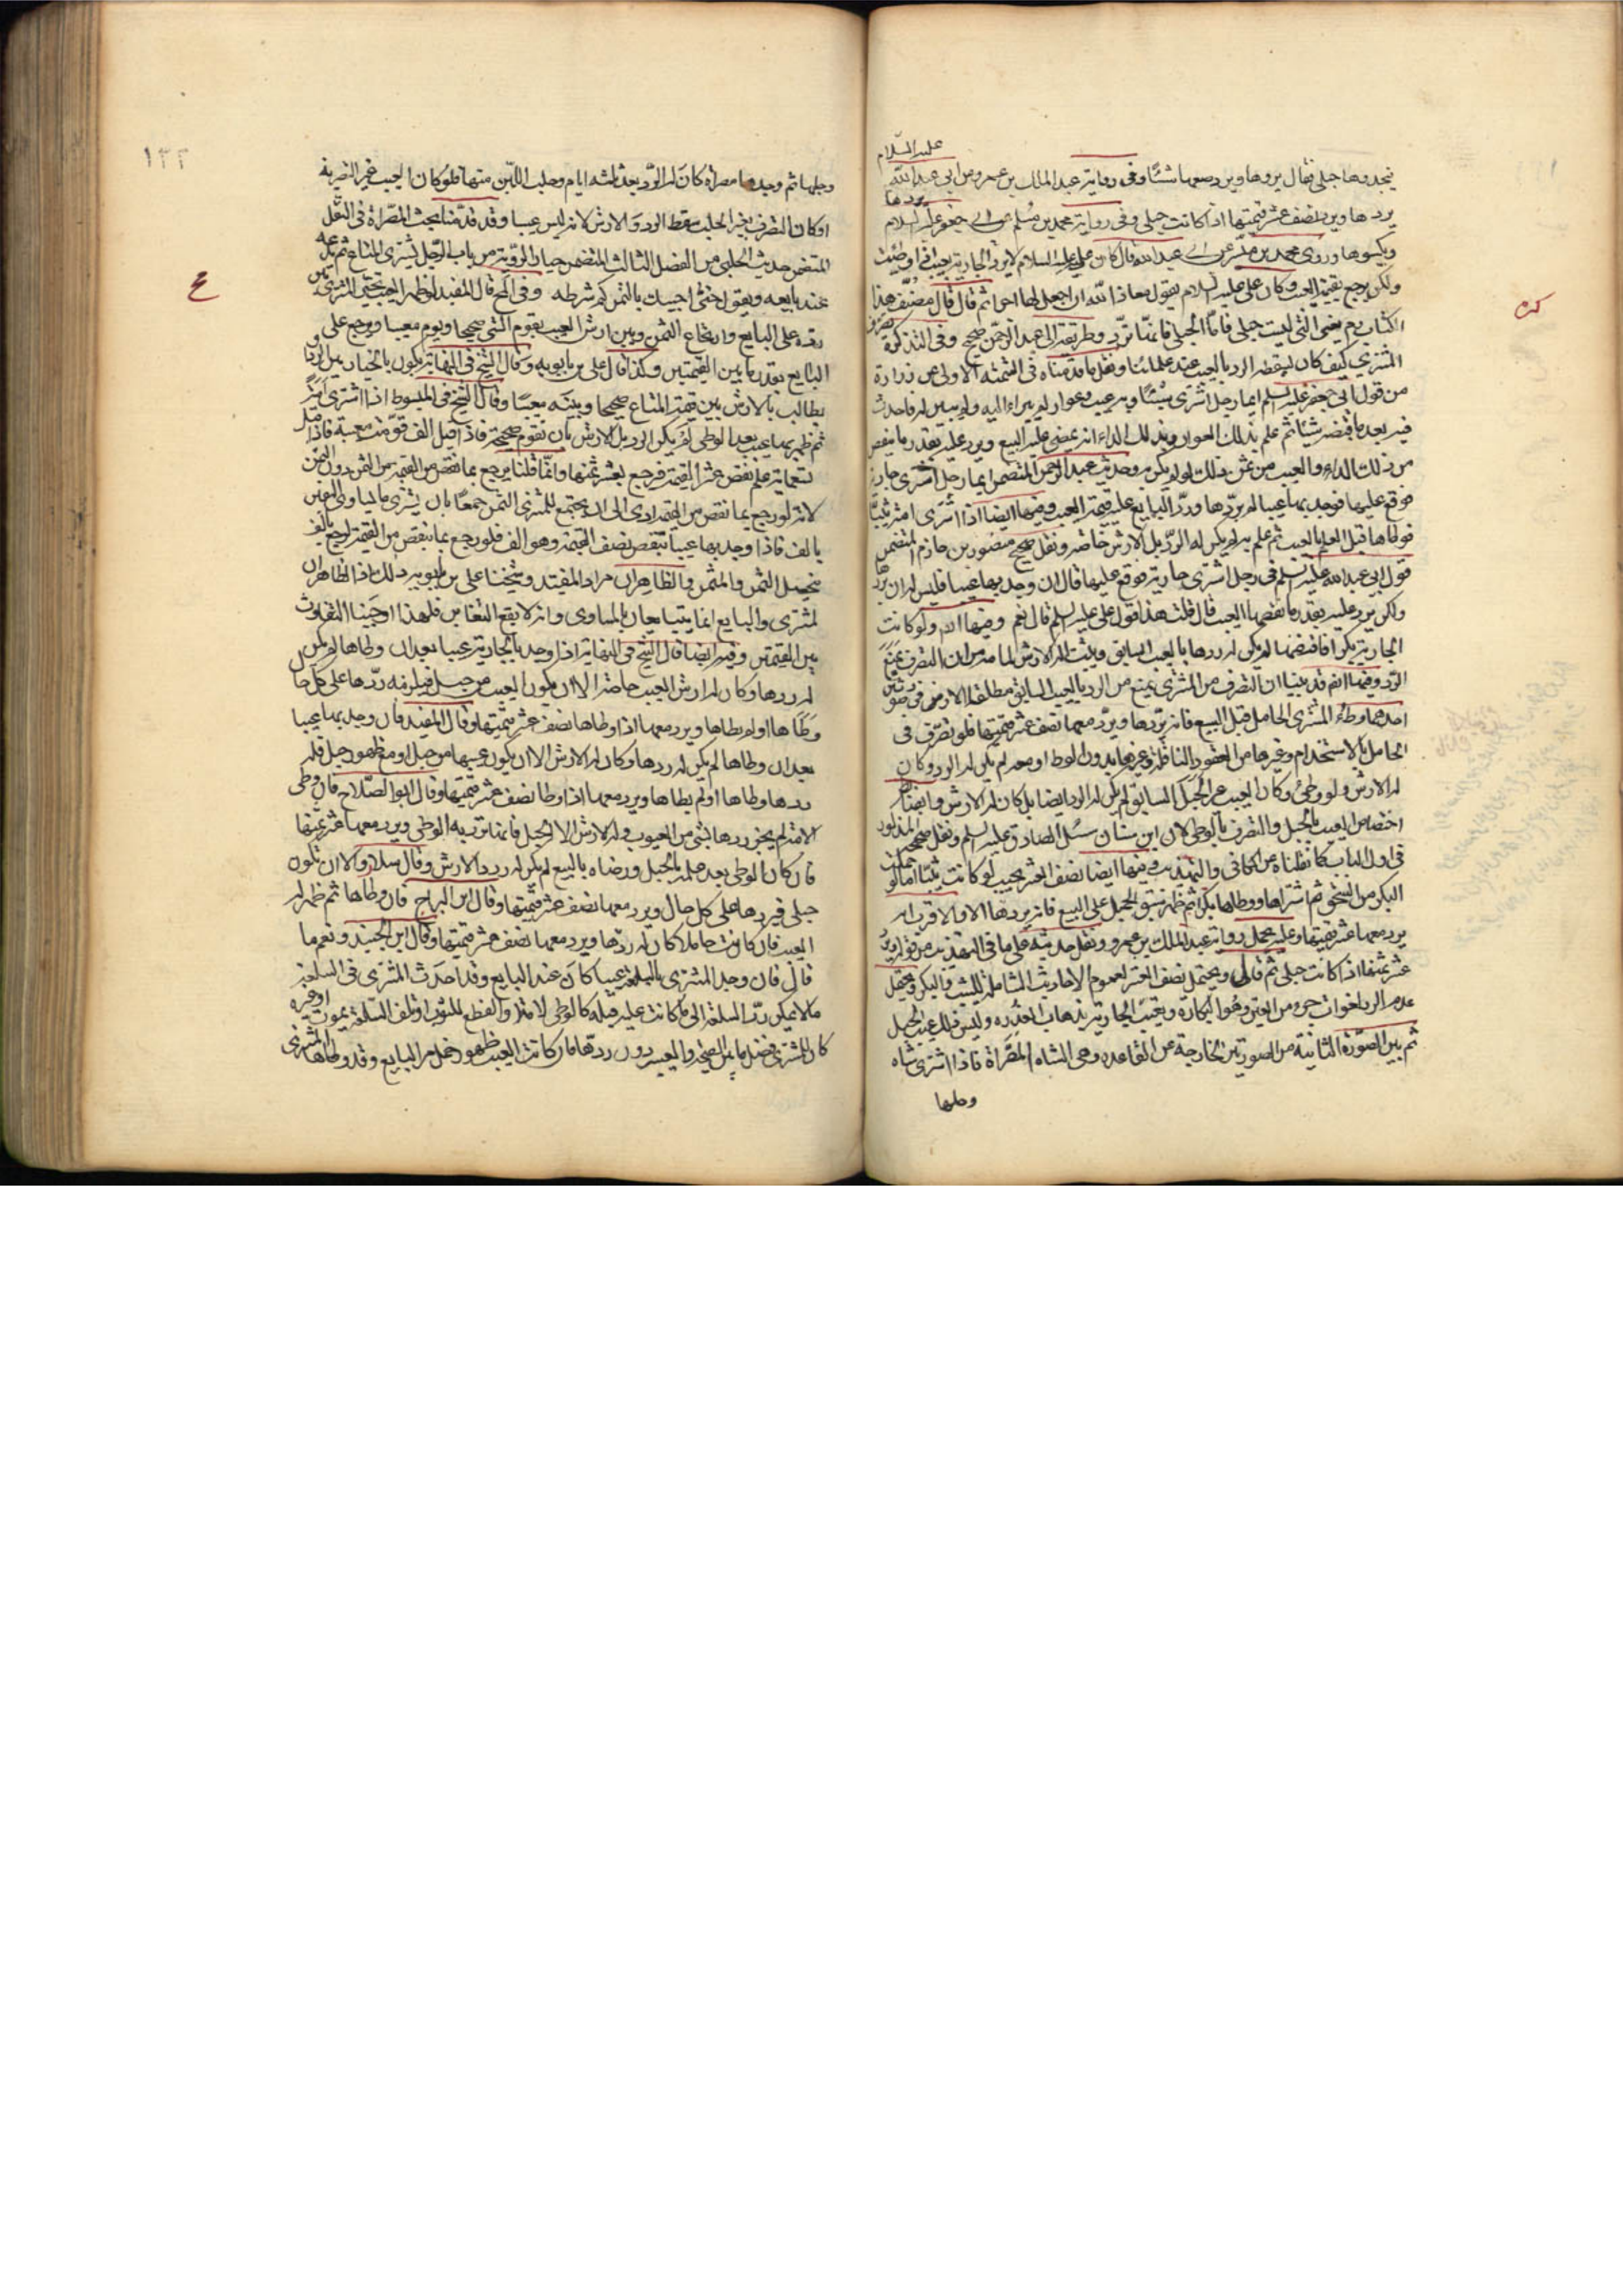 عليه السلام
يجدوها حبلى فقال يردها ويرد معها شيئا وفى رواية عبد الملك بن عمرو عن ابى عبد الله
يردها ويرد نصف عشر قيمتها اذا كانت حبلى وفى رواية محمد بن مسلم عن ابى جعفر عليه السلام يردها
ويكسوها وروى محمد بن ميسر عن ابى عبد الله قال كان على عليه السلام لا يرد الجارية بعيب اذا وطئت
ولكن يرجع بقيمة العيب وكان على عليه السلام يقول معاذ الله ان اجعل لها اجرا ثم قال قال مصنف هذا
الكتاب يعنى التى ليست بحبلى فاما الحبلى فانها ترد وطريقه الى عبد الرحمن صحيح وفى التذكرة تصرف
المشترى كيف كان يسقط الرد بالعيب عند علمائنا ونقل ما قدمناه فى التتمة الاولى عن زرارة
من قول ابى جعفر عليه السلم ايما رجل اشترى شيئا وبه عيب وعوار لم يبراء اليه ولم يبين له فاحدث
فيه بعد ما قبضه شيئا ثم علم بذلك العوار وبذلك الداء انه يمضى عليه البيع ويرد عليه بقدر ما ينقص
من ذلك الداء والعيب من ثمن ذلك لو لم يكن به وحديث عبد الرحمن المتضمن ايما رجل اشترى جارية
فوقع عليها فوجد بها عيبا لم يردها ورد البايع عليه قيمة العيب وفيها ايضا اذا اشترى امة ثيبا
فوطاها قبل العلم بالعيب ثم علم به لم يكن له الرد بل الارش خاصة ونقل صحيح منصور بن حازم المتضمن
قول ابى عبد الله عليه السلم فى رجل اشترى جارية فوقع عليها قال ان وجد بها عيبا فليس له ان يردها
ولكن يرد عليه بقدر ما نقصها العيب قال قلت هذا قول على عليه السلم قال نعم وفيها انه ولو كانت
الجارية بكرا فافتضها لم يكن له ردها بالعيب السابق ويثبت له الارش لما مر من ان التصرف يمنع
الرد وفيها انه قد بينا ان التصرف من المشترى يمنع من الرد بالعيب السابق مطلقا الا فى صورتين
احدهما وطء المشترى الحامل قبل البيع فانه يردها ويرد معها نصف عشر قيمتها فلو تصرف فى
الحامل بالاستخدام وغيرها من العقود الناقلة وغيرها بدون الوطا او معه لم يكن له الرد وكان
له الارش ولو وطئ وكان العيب غير الحبل السابق لم يكن له الرد ايضا بل كان له الارش وايضا
اختصاص العيب بالحبل والتصرف بالوطى لان ابن سنان سئل الصادق عليه السلم ونقل صحيحه المذكور
فى اول الباب كما نقلناه عن الكافى والتهذيب وفيها ايضا نصف العشر يجب لو كانت ثيبا اما لو حملت
البكر من السحق ثم اشتراها ووطاها بكرا ثم ظهر سبق الحمل على البيع فانه يردها الا والاقرب انه
يرد معها عشر قيمتها وعليه تحمل رواية عبد الملك بن عمرو ونقل حديثه على ما فى التهذيب من قوله ويرد
عشر ثمنها اذا كانت حبلى ثم قال ويحتمل نصف العشر لعموم الاحاديث الشاملة للثيب والبكر ويحتمل
عدم الرد لفوات جزء من العين وهو البكارة وتعيب الجارية بذهاب العذرة وليس ذلك عيب الحبل
ثم بين الصورة الثانية من الصورتين الخارجة عن القاعدة وهى الشاه المصراة فاذا اشترى شاه
وحلبها
كره
١٢٢
ع
وحلبها ثم وجدها مصراة كان له الرد بعد ثلثه ايام وحلب اللبن منها فلو كان العيب غير التصرية
او كان التصرف بغير الحلب سقط الرد والارش لانه ليس عيبا وقد قدمنا بحث المصراة فى النقل
المتضمن حديث الحلبى من الفصل الثالث المتضمن خيار الرؤية من باب الرجل يشترى المتاع ثم يدعه
عند بايعه ويقول حتى اجيبك بالثمن كم شرطه وفى المخ قال المفيد لو ظهر العيب تخير المشترى بين
رده على البايع وارتجاع الثمن وبين ارش العيب يقوم الشئ صحيحا ويقوم معيبا ويرجع على
البايع بقدر ما بين القيمتين وكذا قال على بن بابويه وقال الشيخ فى النهاية يكون بالخيار بين الرد و
يطالب بالارش بين قيمة المتاع صحيحا وبينه معيبا وقال الشيخ فى المبسوط اذا اشترى امة
ثم ظهر بها عيب بعد الوطى لم يكن الرد بل الارش بان تقوم صحيحة فاذا قيل الف قومت معيبة فاذا قيل
تسعماية علم نقص عشر القيمة فيرجع بعشر ثمنها وانما قلنا يرجع بما نقص من القيمة من الثمن دون الثمن
لانه لو رجع بما نقص من القيمة ادى الى ان يجتمع للمشترى الثمن جمعا بان يشترى ما يساوى الفين
بالف فاذا وجد بها عيبا تنقص نصف القيمة وهو الف فلو رجع بما نقص من القيمة لرجع بالف
فيحصل الثمن والمثمن والظاهر ان مراد المفيد وشيخنا على بن بابويه ذلك فاذا الظاهر ان
المشترى والبايع انما يتبايعان بالمساوى وانه لا يقع التغابن فلهذا اوجبنا التفاوت
بين القيمتين وفيه ايضا قال الشيخ فى النهاية اذا وجد بالجارية عيبا بعد ان وطاها لم يكن
له ردها وكان له ارش العيب خاصة الا ان يكون العيب من حبل فيلزمه ردها على كل حال
وطاها او لم يطاها ويرد معها اذا وطاها نصف عشر قيمتها وقال المفيد فان وجد بها عيبا
بعد ان وطاها لم يكن له ردها وكان له الارش الا ان يكون عيبها من حبل او مع ظهور حبل فله
ردها وطاها او لم يطاها ويرد معها اذا وطا نصف عشر قيمتها وقال ابو الصلاح فان وطى
الامة لم يجز ردها بشئ من العيوب وله الارش الا الحبل فانها ترد به الوطى ويرد معها عشر قيمتها
فان كان الوطى بعد علمه بالحبل ورضاه بالبيع لم يكن له رد ولا ارش وقال سلار والا ان تكون
حبلى فيردها على كل حال ويرد معها نصف عشر قيمتها وقال ابن البراج فان وطاها ثم ظهر له
العيب فان كانت حاملا كان له ردها ويرد معها نصف عشر قيمتها وقال ابن الجنيد ونعم ما
قال فان وجد المشترى بالسلعة عيبا كان عند البايع وقد احدث المشترى فى السلعة
ما لا يمكن رد السلعة الى ما كانت عليه قبله كالوطى للامة والقطع للثوب او تلف السلعة بموت او غيره
كان للمشترى فضل ما بين الصحة والعيب دون ردها فان كانت العيب ظهور حمل من البايع وقد وطاها المشترى